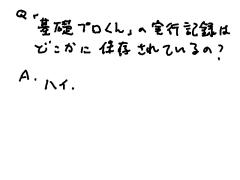 Q「基礎プロくん」の実行記録は
どこかに保存されているの?
A. ハイ.